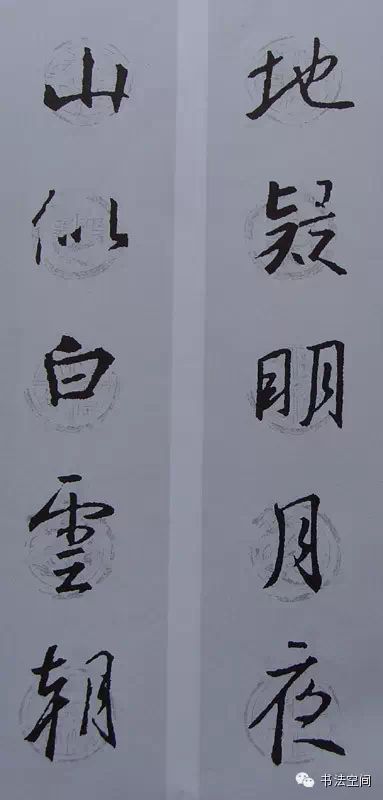 地疑明月夜
山似白雲朝
书法空间